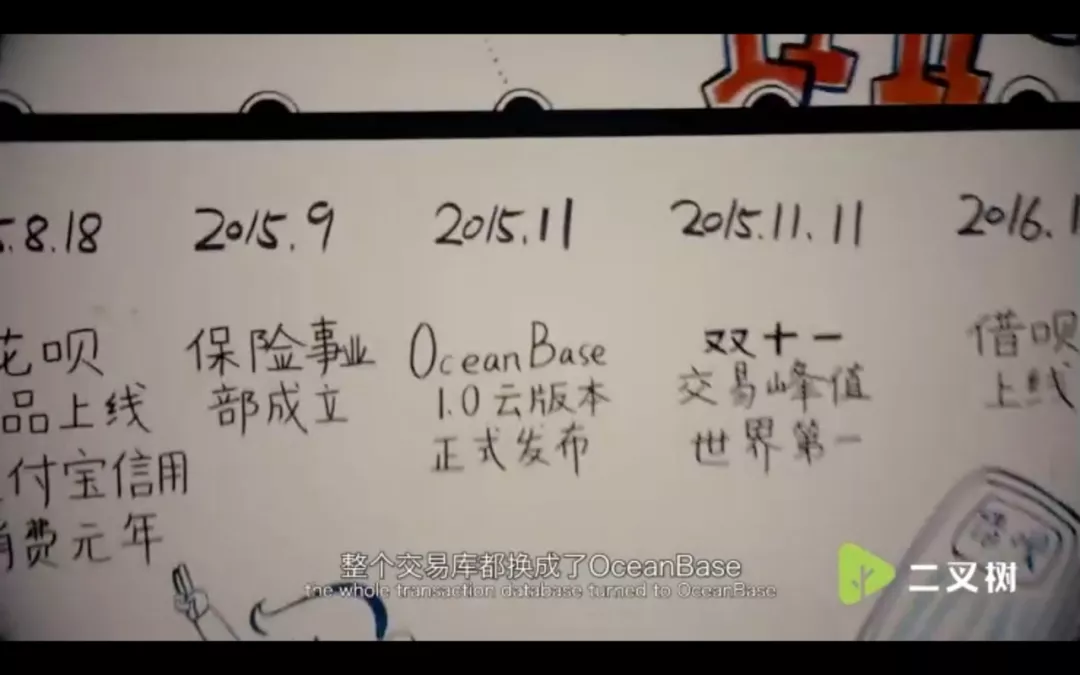 5.8.18
2015.9
2015.11
2015.11.11
2016.1
花呗
品上线
付宝信用
消费元年
保险事业
部成立
OceanBase
1.0云版本
正式发布
双十一
交易峰值
世界第一
借呗
上线
整个交易库都换成了OceanBase
the whole transaction database turned to OceanBase
二叉树